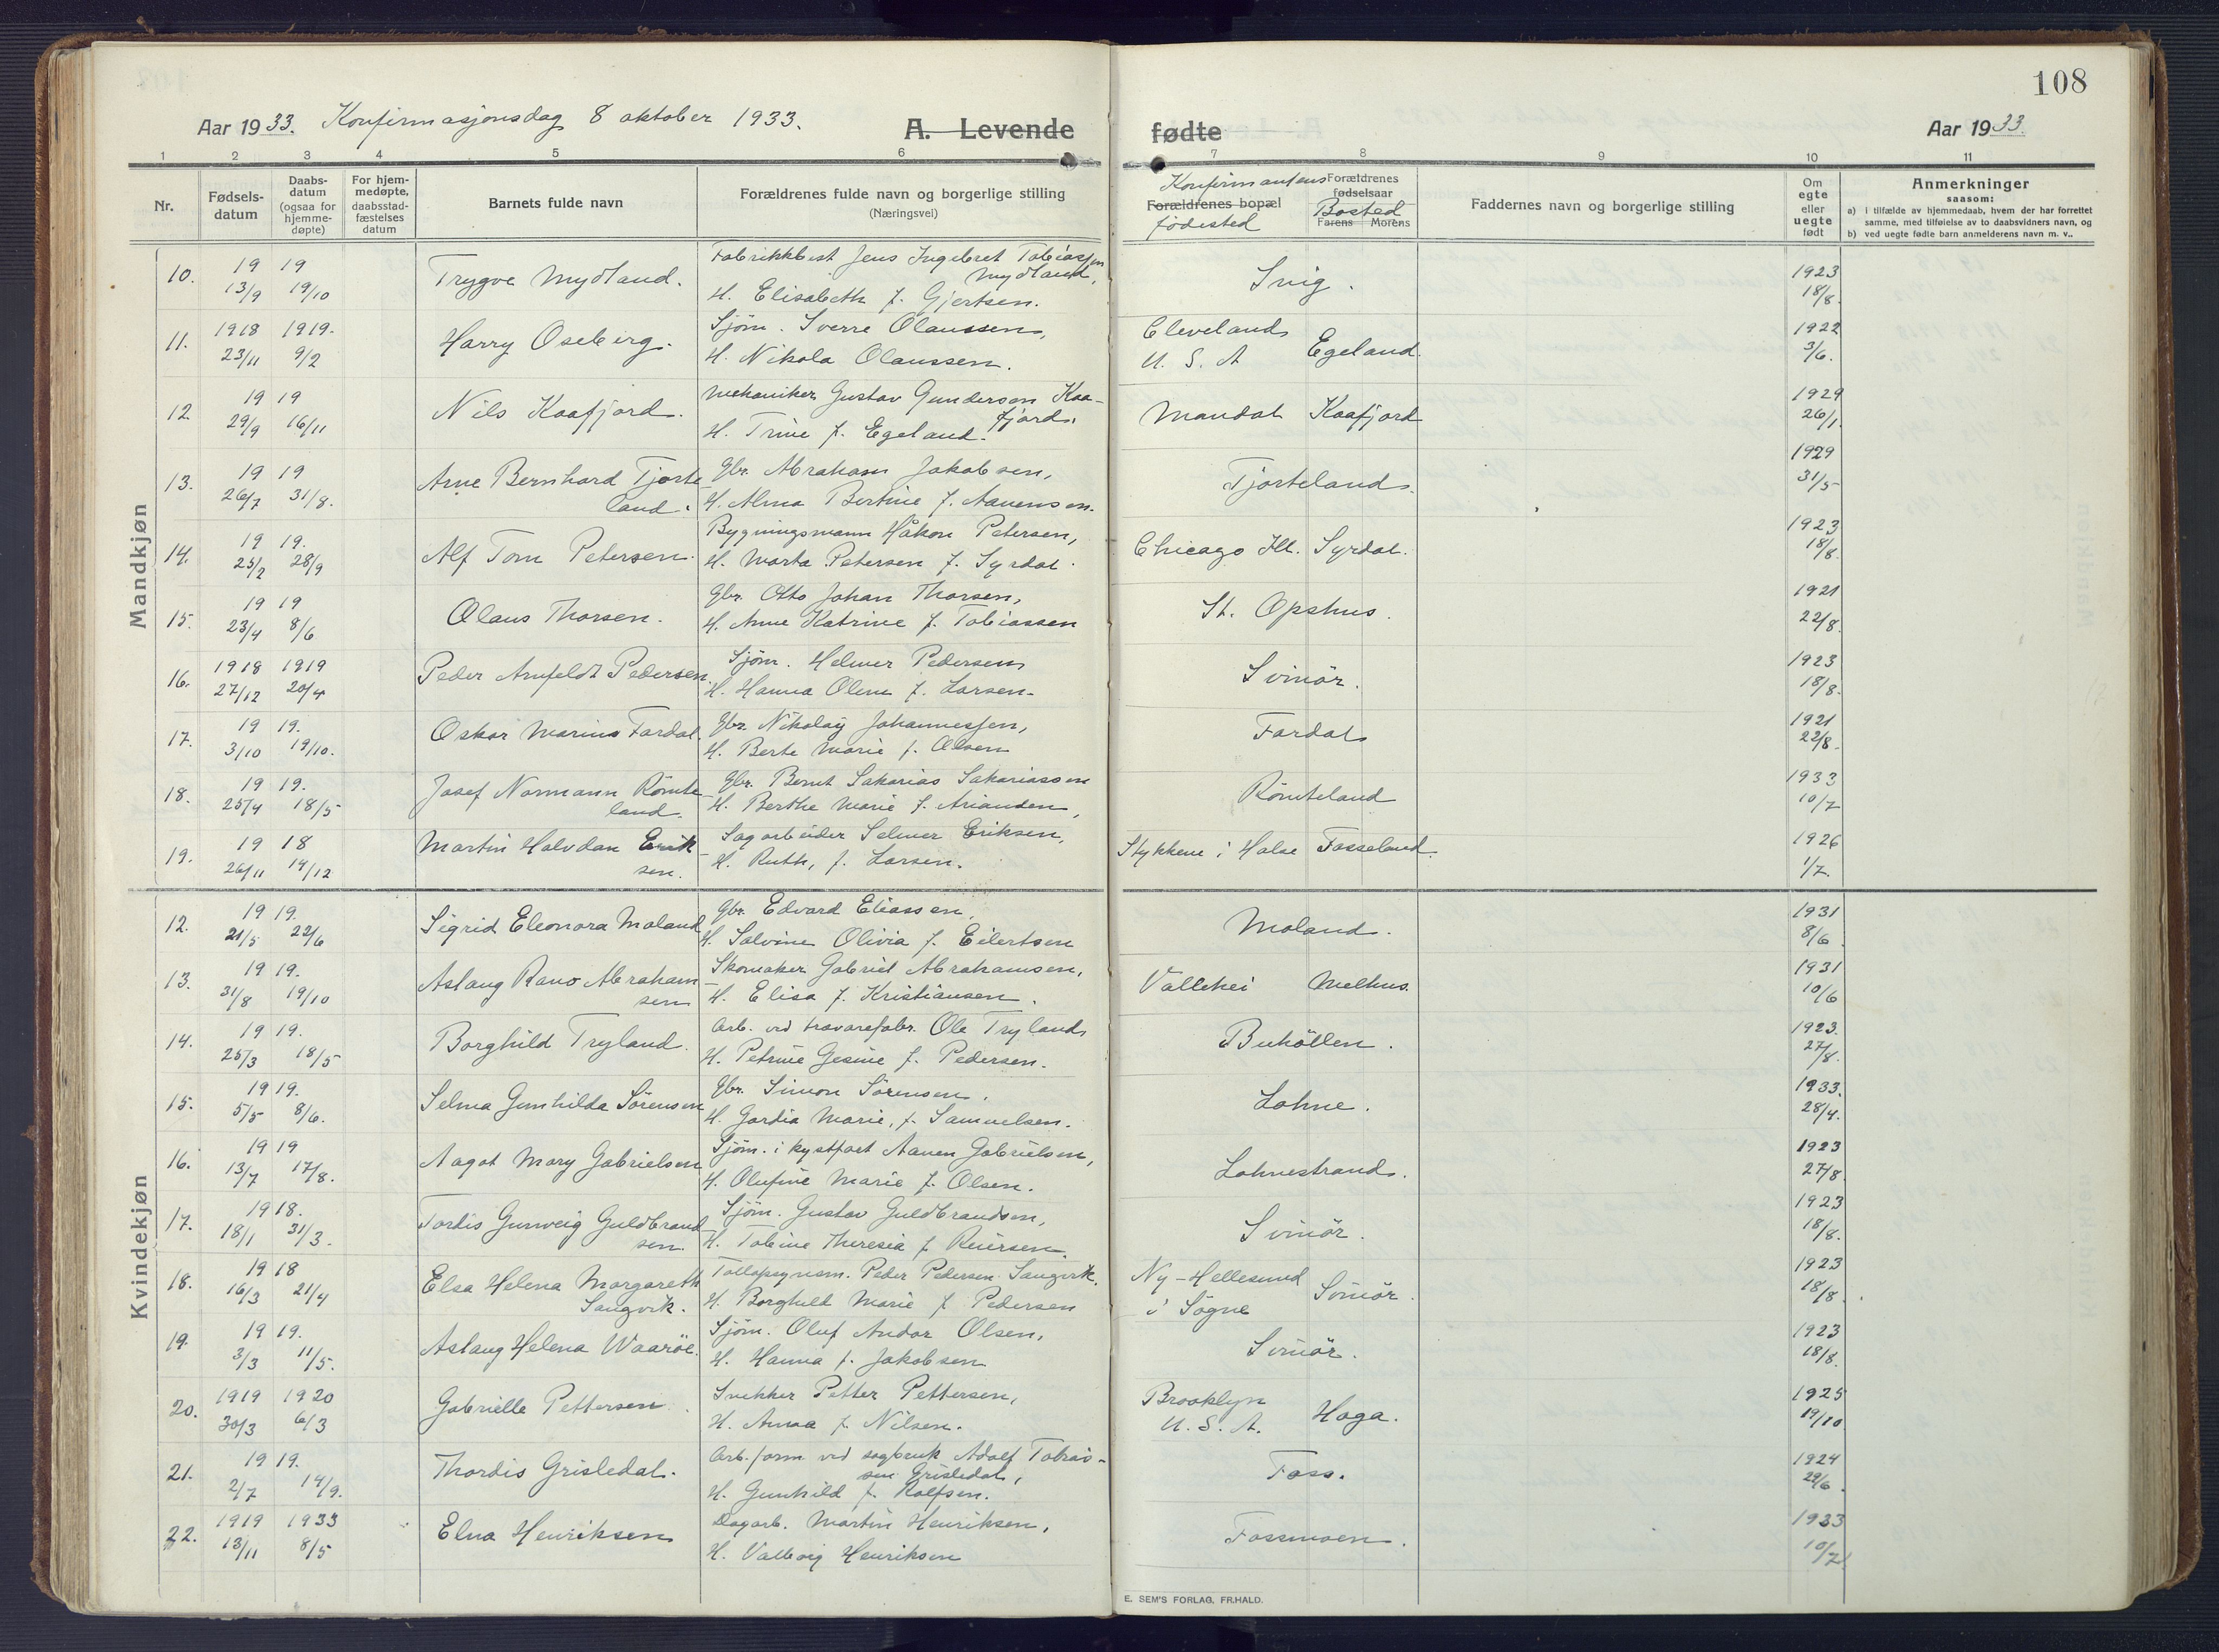 108
Aar 1933. Konfirmasjonsdag 8 oktober 1933. A. Levende fødte Aar 1933.
1 2 3 4 5 6 7 8 9 10 11
Nr.
Fødsels-
datum
Daabs-
datum
(ogsaa for
hjemme-
døpte)
For hjem-
medøpte,
daabsstad-
fæstelses
datum
Barnets fulde navn
Forældrenes fulde navn og borgerlige stilling
(Næringsvei)
Konfirmantens
Forældrenes bopæl
fødested
Forældrenes
fødselsaar
Bosted
Farens Morens
Faddernes navn og borgerlige stilling
Om
egte
eller
uegte
født
Anmerkninger
saasom:
a) i tilfælde av hjemmedaab, hvem der har forrettet
samme, med tilføielse av to daabsvidners navn, og
b) ved uegte fødte barn anmelderens navn m. v..
Mandkjøn
10. 19 19 Trygve Mydland. Fabrikkbest Jens Ingebret Tobiassen Mydland, Svig. 1923
13/9 19/10 H. Elisabeth f. Gjertsen. 18/8.
11. 1918 1919. Harry Oseberg. Sjöm. Sverre Olaussen, Cleveland Egeland. 1922
23/11 9/2 H. Nikola Olaussen. U. S. A 3/6.
12. 19 19 Nils Kaafjord. Mekaniker Gustav Gundersen Kaa- Mandal Kaafjord 1929
29/9 16/11 H. Trine f. Egeland. fjord. 26/1.
13. 19 19 Arne Bernhard Tjorte- Gbr. Abraham Jakobsen, Tjorteland. 1929
26/7 31/8. land. H. Alma Bertine f. Aanensen. 31/5
14. 19 19. Alf Tom Petersen. Bygningsmann Håkon Petersen, Chicago Ill. Syrdal. 1923
25/2 28/9 H. Marta Petersen f. Syrdal. 18/8.
15. 19 19 Olaus Thorsen. Gbr. Otto Johan Thorsen, St. Opshus. 1921
23/4 8/6 H. Anne Katrine f. Tobiassen 22/8.
16. 1918 1919 Peder Arnfeldt Pedersen. Sjöm. Helmer Pedersen Svinör. 1923
27/12 20/4 H. Hanna Olene f. Larsen. 18/8.
17. 19 19. Oskar Marius Fardal. Gbr. Nikolay Johannessen, Fardal 1921
3/10 19/10. H. Berte Marie f. Olsen 22/8.
18. 19 19. Josef Normann Römte- Gbr. Bernt Sakarias Sakariassen Römteland 1933
25/4 18/5 land. H. Berthe Marie f. 10/7
19. 19 18 Martin Halvdan Erik- Sagarbeider Selmer Eriksen, Stykkene i Halse Fasseland. 1926
26/11 14/12 sen. H. Ruth, f. Larsen. 1/7.
Kvindekjøn
12. 19 19. Sigrid Eleonora Moland Gbr. Edvard Eliassen, Moland. 1931
21/5 22/6 H. Salvine Olivia f. Eilertsen 8/6.
13. 19 19. Aslaug Rano Abraham- Skomaker Gabriel Abrahamsen, Vallehei Melhus. 1931
31/8 19/10 sen H. Elisa f. Kristiansen. 10/6
14. 19 19. Borghild Tryland. Arb. ved travarefabr. Ole Tryland Buhöllen. 1923.
25/3 18/5 H. Petrine Gesine f. Pedersen. 27/8.
15. 19 19. Selma Gunhilda Sörensen Gbr. Simon Sörensen. Lohne. 1933.
5/5 8/6. H. Gardia Marie, f. Samuelsen. 28/4.
16. 19 19 Aagot Mary Gabrielsen Sjöm. i kystfart Aanen Gabrielsen, Lohnestrand. 1923
13/7 17/8. H. Olufine Marie f. Olsen. 27/8
17. 19 18. Tordis Gunveig Guldbrand- Sjöm. Gustav Guldbrandsen, Svinör. 1923
18/1 31/3. sen. H. Tobine Theresia f. Reiersen. 18/8.
18. 19 18 Elsa Helena Margareth Tollopsynsm. Peder Pedersen Sangvik. Ny-Hellesund Svinör. 1923
16/3 21/4 Sangvik. H. Borghild Marie f Pedersen i Sögne 18/8.
19. 19 19. Aslaug Helena Waaröe. Sjöm. Oluf Andor Olsen, Svinör. 1923
3/3 11/5. H. Hanna f. Jakobsen 18/8.
20. 1919 1920 Gabrielle Pettersen. Snekker Petter Pettersen, Brooklyn Haga. 1925
30/3 6/3 H. Anna f. Nilsen. U. S. A. 19/10
21. 19 19. Thordis Grisledal. Arb.form. ved sagbruk Adolf Tobias- Foss. 1924
2/7 14/9. sen Grisledal,
H. Gunhild f. Rolfsen. 29/6.
22. 1919 1933 Elna Henriksen Dagarb. Martin Henriksen, Fossmoen. 1933
13/11 8/5 H. Valborg Henriksen 10/7.
E. SEM'S FORLAG, FR.HALD.